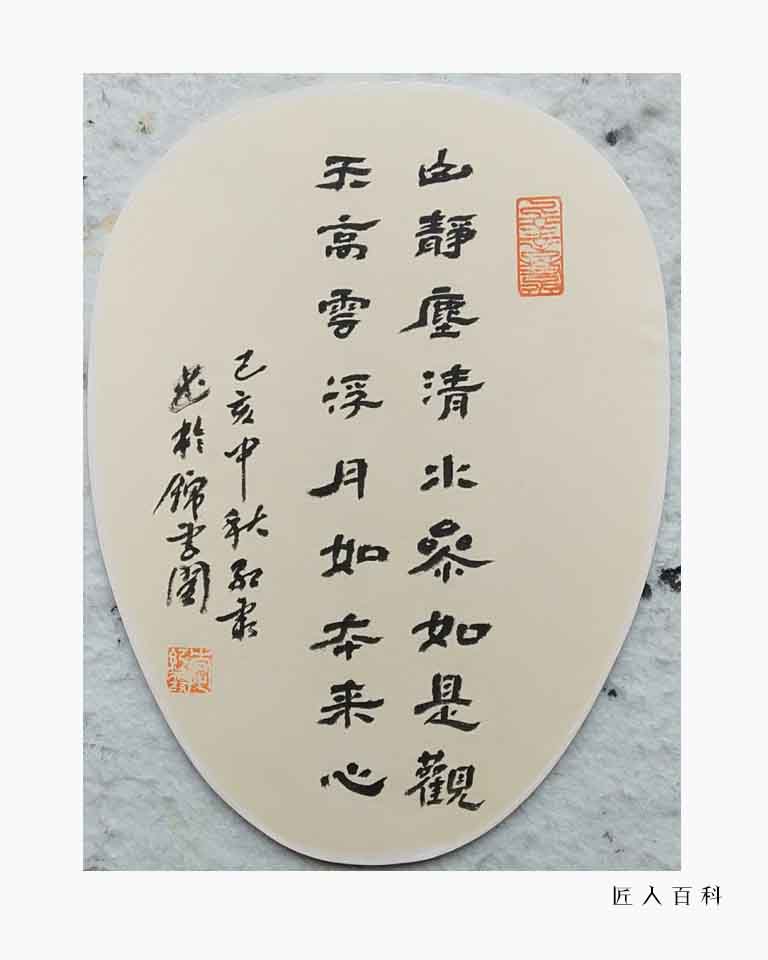 山靜塵清水參如是觀
天高雲浮月如本来心
己亥中秋
於錦書閣
匠人百科